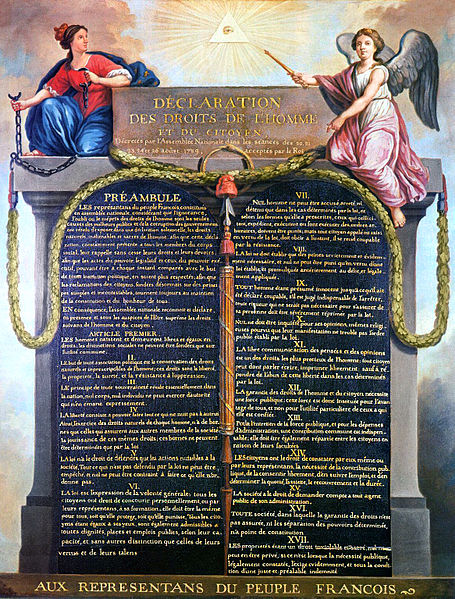 DÉCLARATION
DES DROITS DE L'HOMME
ET DU CITOYEN,
Décrétés par l'Assemblée Nationale dans les séances des 20, 21,
23, 24 et 26 août 1789, acceptés par le Roi
PRÉAMBULE
LES représentans du peuple François, constitués
en assemblée nationale, considérant que l'ignorance,
l'oubli ou le mépris des droits de l'homme sont les seules
causes des malheurs publics et de la corruption des gouvernemens
ont résolu d'exposer dans une déclaration solemnelle, les droits
naturels, inaliénables et sacrés de l'homme; afin que cette décla-
ration, constamment présente a tous les membres du corps
social, leur rappelle sans cesse leurs droits et leurs devoirs;
afin que les actes du pouvoir législatif et ceux du pouvoir exé-
cutif, pouvant être à chaque instant comparés avec le but
de toute institution politique, en soient plus respectés; afin que
les réclamations des citoyens, fondées désormais sur des princi-
pes simples et incontestables, tournent toujours au maintien
de la constitution et du bonheur de tous.
EN conséquence, l'assemblée nationale reconnoit et déclare
en présence et sous les auspices de l'Être suprême les droits
suivans de l'homme et du citoyen.
ARTICLE PREMIER.
LES hommes naissent et demeurent libres et égaux en
droits; les distinctions sociales ne peuvent être fondées que sur
l'utilité commune.
II.
LE but de toute association politique est la conservation des droits
naturels et imprescriptibles de l'homme; ces droits sont la liberté,
la propriété, la sureté, et la résistance à l'oppression.
III.
LE principe de toute souveraineté réside essentiellement dans
la nation, nul corps, nul individu ne peut exercer d'autorité
qui n'en émane expressement.
IV.
LA liberté consiste à pouvoir faire tout ce qui ne nuit pas à autrui
Ainsi, l'exercice des droits naturels de chaque homme, n'a de bor-
nes que celles qui assurent aux autres membres de la société
la jouissance de ces mêmes droits; ces bornes ne peuvent
être déterminées que par la loi.
V.
LA loi n'a le droit de défendre que les actions nuisibles à la
société. Tout ce qui n'est pas défendu par la loi ne peut être
empêché, et nul ne peut être contraint à faire ce qu'elle n'or-
donne pas.
VI.
LA loi est l'expression de la volonté générale; tous les
citoyens ont droit de concourir personnellement, ou par
leurs représentans, à sa formation; elle doit être la même
pour tous, soit qu'elle protege, soit qu'elle punisse. Tous les cito-
yens étant égaux à ses yeux, sont également admissibles à
toutes dignités, places et emplois publics, selon leur ca-
pacité, et sans autres distinction que celles de leurs
vertus et de leurs talens
VII.
NUL homme ne peut être accusé, arreté, ni
détenu que dans les cas déterminés par la loi, et
selon les formes qu'elle a prescrites, ceux qui sollici-
tent, expédient, exécutent ou font exécuter des ordres ar-
bitraires, doivent être punis; mais tout citoyen appelé ou saisi
en vertu de la loi, doit obéir a l'instant, il se rend coupable
par la résistance.
VIII.
LA loi ne doit établir que des peines strictement et évidem-
ment nécessaire, et nul ne peut être puni qu'en vertu d'une
loi établie et promulguée antérieurement au délit, et légale-
ment appliquée.
IX.
TOUT homme étant présumé innocent jusqu'à ce qu'il ait
été déclaré coupable, s'il est jugé indispensable de l'arrêter,
toute rigueur qui ne serait pas nécessaire pour s'assurer de
sa personne doit être sévèrement réprimée par la loi.
X.
NUL ne doit être inquiété pour ses opinions, mêmes reli-
gieuses pourvu que leur manifestation ne trouble pas l'ordre
public établi par la loi.
XI.
LA libre communication des pensées et des opinions
est un des droits les plus précieux de l'homme; tout citoyen
peut donc parler, écrire, imprimer librement: sauf à ré-
pondre de l'abus de cette liberté dans les cas déterminés
par la loi.
XII.
LA garantie des droits de l'homme et du citoyen nécessite
une force publique; cette force est donc instituée pour l'avan-
tage de tous, et non pour l'utilité particuliere de ceux a qui
elle est confiée.
XIII.
POUR l'entretien de la force publique, et pour les dépenses
d'administration, une contribution commune est indispen-
sable; elle doit être également répartie entre les citoyens en
raison de leurs facultées
XIV.
LES citoyens ont le droit de constater par eux même ou
par leurs représentans, la nécessité de la contribution pub-
lique, de la consentir librement, d'en suivre l'emploi, et d'en
déterminer la quotité, l'assiette, le recouvrement et la durée.
XV.
LA société a le droit de demander compte a tout agent
public de son administration.
XVI.
TOUTE société, dans laquelle la garantie des droits n'est
pas assurée, ni les séparation des pouvoirs déterminée,
n'a point de constitution
XVII.
LES propriétés étant un droit inviolable et sacré, nul ne
peut en être privé, si ce n'est lorsque la nécessité publique,
légalement constatée, l'exige évidemment, et sous la condi-
tion d'une juste et préalable indemnité
AUX REPRESENTANS DU PEUPLE FRANCOIS